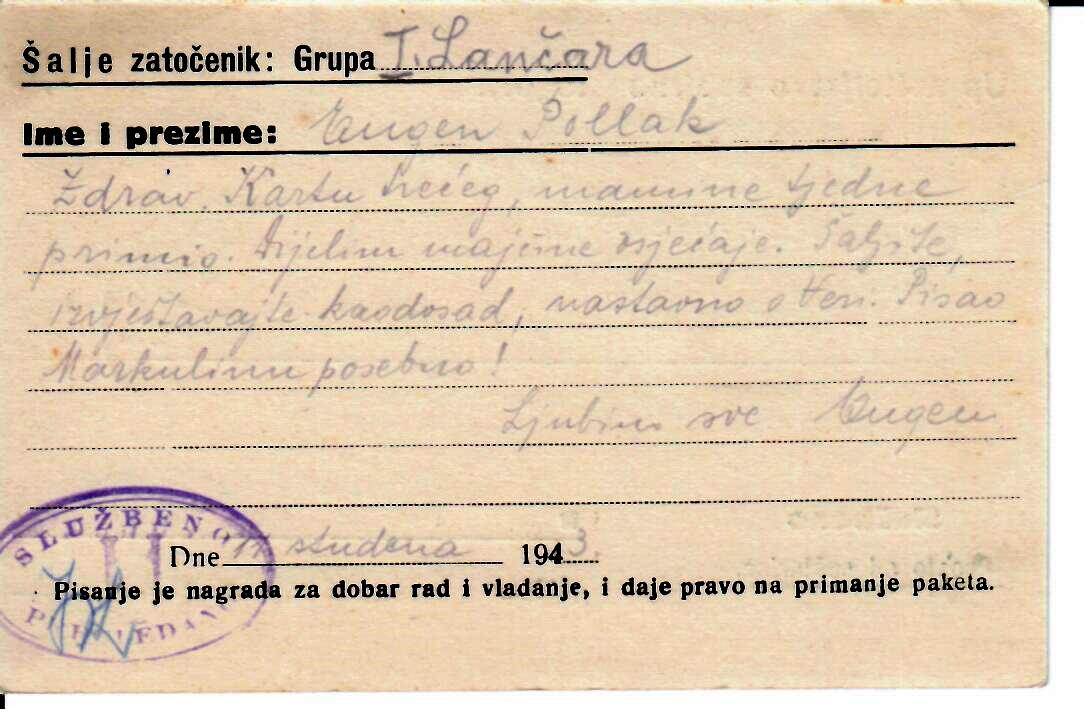 Šalje zatočenik: Grupa I. Lančara
Ime i prezime: Eugen Pollak
Zdrav. Kartu trećeg, mamine tjedne
primio. Dijelim majčine osjećaje. Šaljite,
izvještavajte kaodosad, nastavno o Veri. Pisao
Markulinu posebno!
Ljubim sve Eugen
SLUŽBENO
Dne 17 studena 1943.
Pisanje je nagrada za dobar rad i vladanje, i daje pravo na primanje paketa.